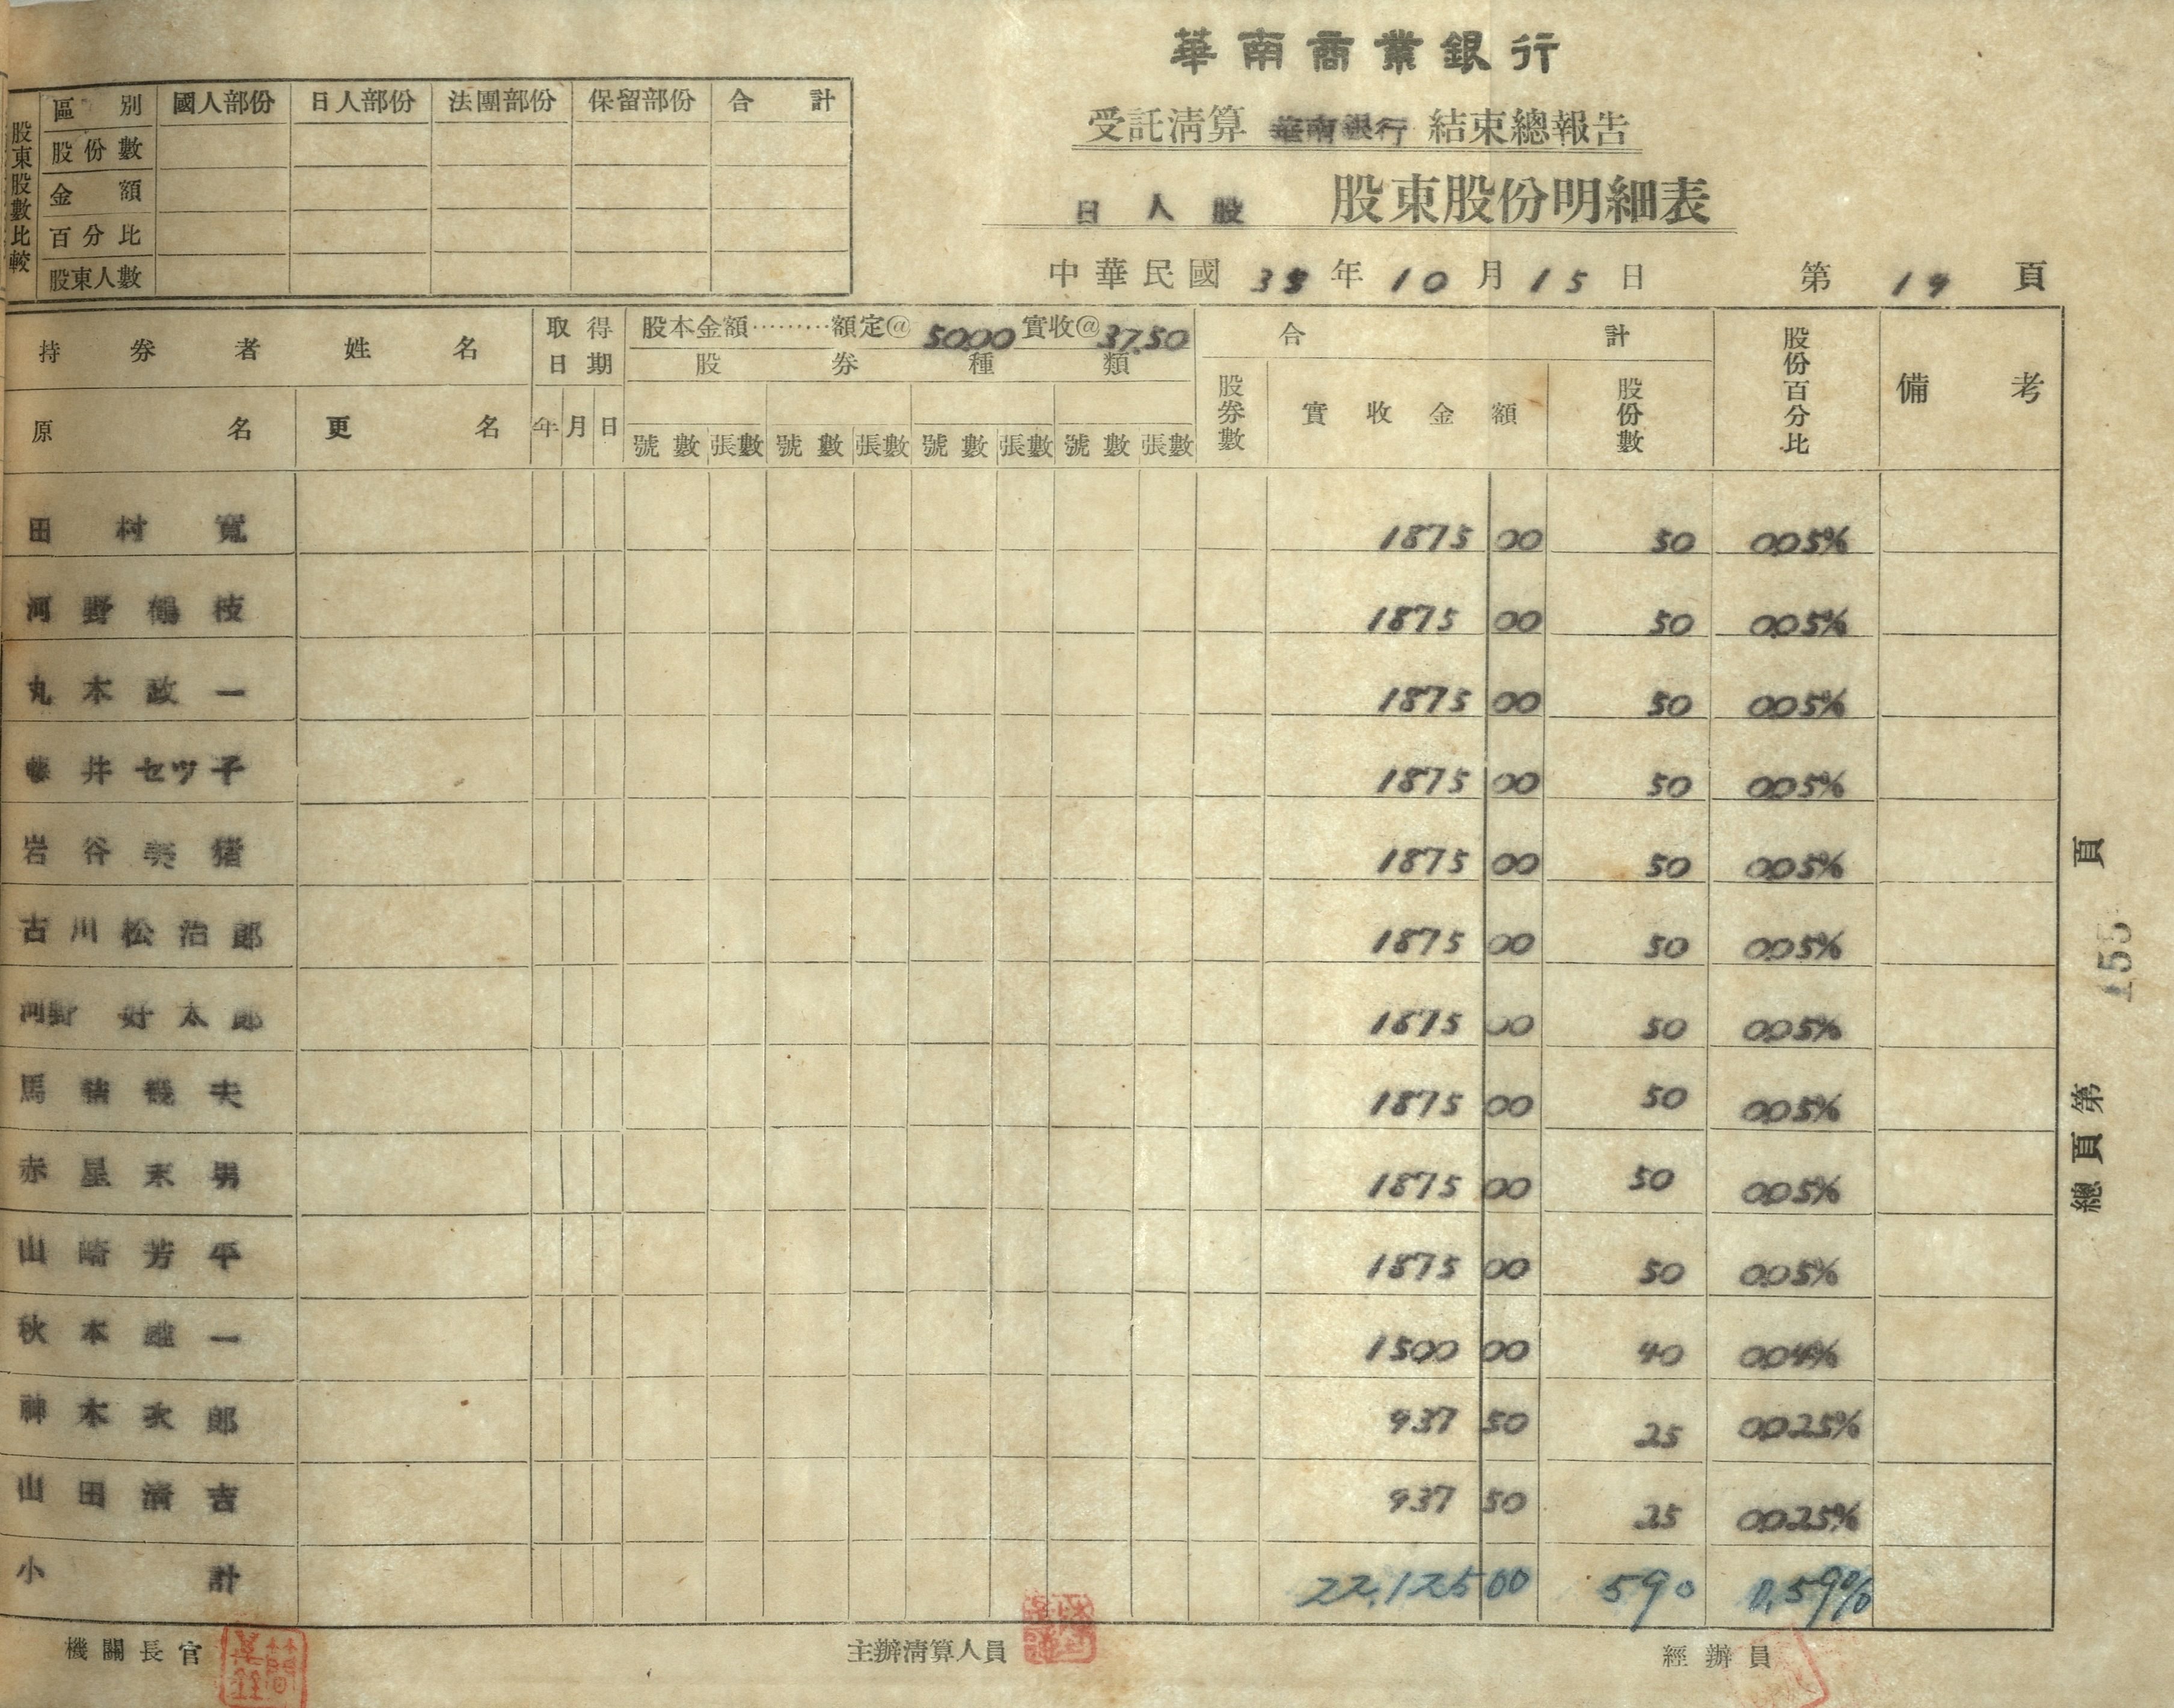 華南商業銀行
受託清算 華南銀行 結束總報告
日人股 股東股份明細表
中華民國 38 年 10 月 15 日 第 19 頁
股東股數比較
區別 國人部份 日人部份 法團部份 保留部份 合計
股份數
金額
百分比
股東人數
持券者姓名 取得日期 股本金額………額定@ 50.00 實收@ 37.50 合計 股份百分比 備考
股券種類
原名 更名 年 月 日 號數 張數 號數 張數 號數 張數 號數 張數 股券數 實收金額 股份數
田村寬 1875 00 50 0.05%
河野鶴枝 1875 00 50 0.05%
丸本政一 1875 00 50 0.05%
藤井セツ子 1875 00 50 0.05%
岩谷 猪 1875 00 50 0.05%
古川松治郎 1875 00 50 0.05%
河野好太郎 1875 00 50 0.05%
馬 夫 1875 00 50 0.05%
赤星末男 1875 00 50 0.05%
山崎芳平 1875 00 50 0.05%
秋本 一 1500 00 40 0.04%
神木次郎 937 50 25 0.025%
山田清吉 937 50 25 0.025%
小計 22,125 00 590 0.59%
機關長官 主辦清算人員 經辦員
總頁第 155 頁